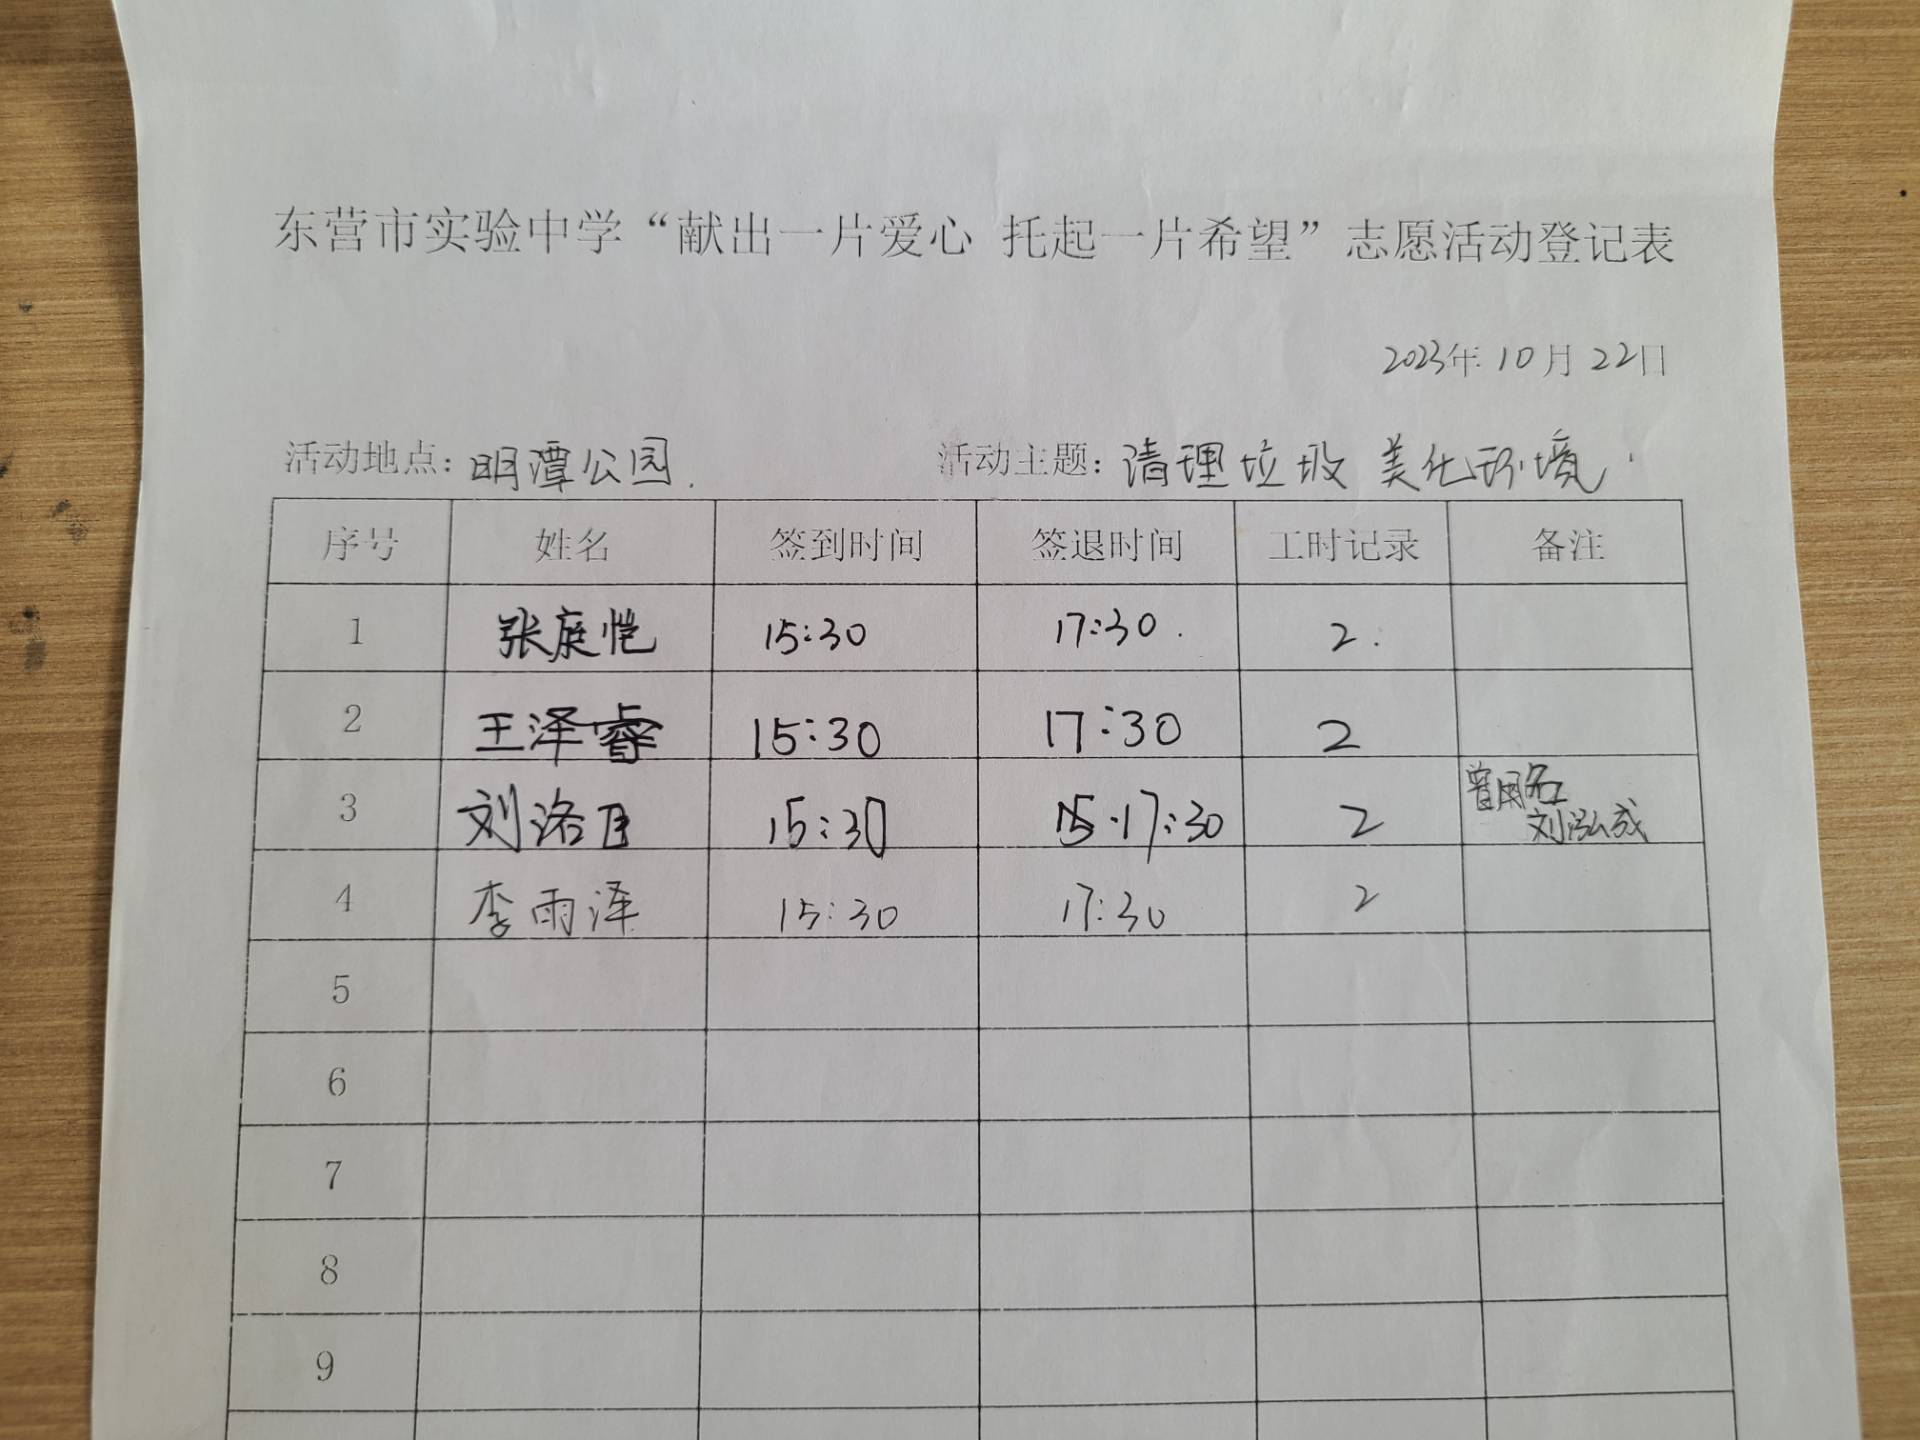 东营市实验中学“献出一片爱心 托起一片希望”志愿活动登记表
2023年10月22日
活动地点：明潭公园. 活动主题：清理垃圾 美化环境.
序号 姓名 签到时间 签退时间 工时记录 备注
1 张庭恺 15:30 17:30. 2.
2 王泽睿 15:30 17:30 2
3 刘洛 15:30 17:30 2 曾用名
刘泓成
4 李雨泽 15:30 17:30 2
5
6
7
8
9